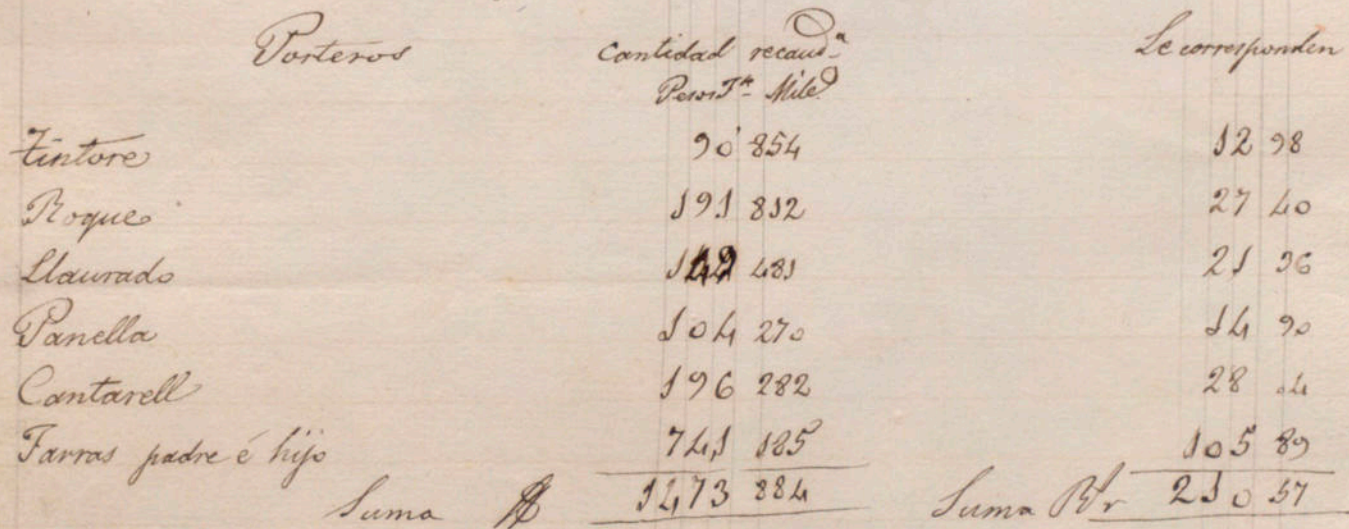 Porteros Cantidad recaud.ª Le corresponden
Pesos F.s Mile.s
Tintore 90 854 12 98
Roque 191 812 27 40
Llaurado 149 481 21 36
Panella 104 270 14 90
Cantarell 196 282 28 04
Farras padre é hijo 741 185 105 89
Suma $ 1473 884 Suma R.s v 210 57